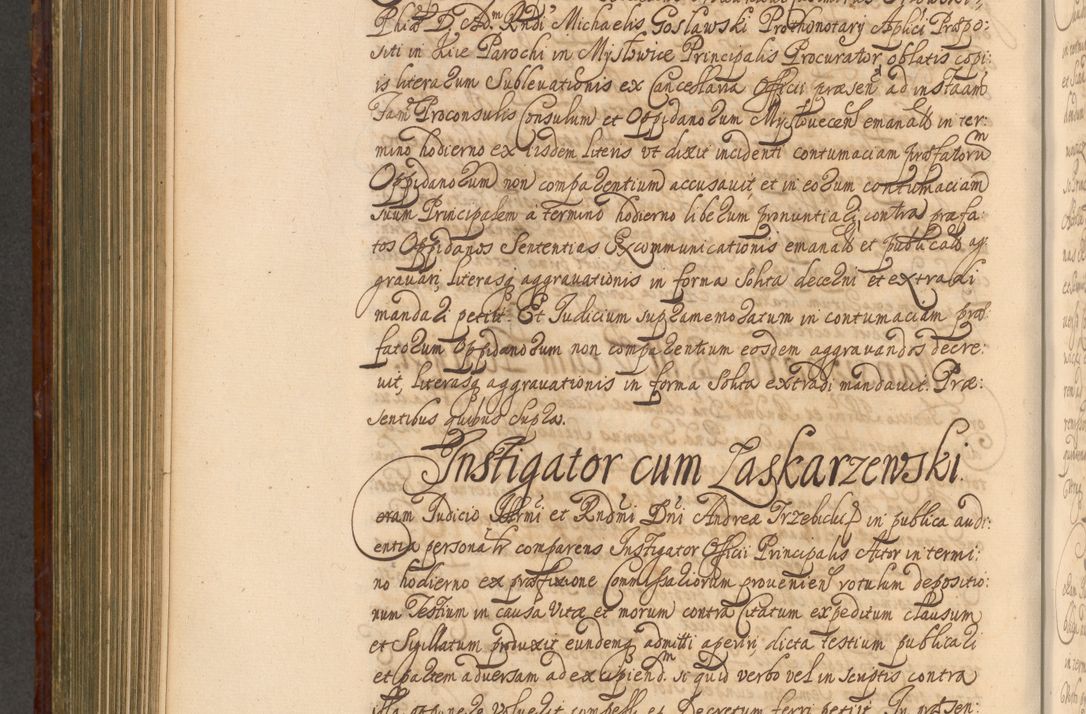 Phiæ D. Adm. Rndi Michaelis Gosławski Prothonotary Aplici Præpo:
siti in Kiie Parochi in Mysłowice Principalis Procurator oblatis copi:
is literarum Sublevationis ex Cancellaria Officii præsent ad instaam
fam Proconsulis Consulum et Oppidanorum Mysłovecens emanatis in ter:
mino hodierno ex iisdem literis vt dixit incidenti contumaciam præfatorum
Oppidanorum non comparentium accusauit et in eorum contumaciam
suum Principalem a termino hodierno liberum pronuntiari, contra præfa:
tos Oppidanos Sententias Excommunicationis emanatis et publicatis ag:
gravari, literasq aggravationis in forma solita decerni et extradi
mandari petiit. Et Judicium supramemoratum in contumaciam præ:
fatorum Oppidanorum non comparentium eosdem aggravandos decre:
uit, literasq aggrauationis in forma solita extradi mandauit. Præ:
sentibus quibus supra.
Instigator cum Laskarzewski.
Coram Judicio Illrmi et Rndmi Dni Andreæ Trzebicki in publica audi:
entia personalr comparens Instigator Officii Principalis Actor in termi:
no hodierno ex præfixione Commissariorum provenien rotulum depositio:
num Testium in causa Vitæ et morum contra Citatum expeditum clausum
et Sigillatum produxit eundemq admitti aperiri dicta testium publicari
et partem adversam ad excipiendm si quid verbo vel in scriptis contra
illa opponere voluerit compelli et Decretum ferri petiit. In præsen: